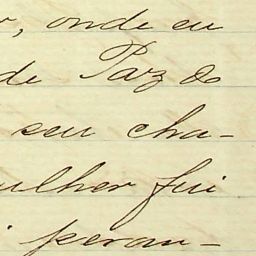 , onde eu
de Paz do
seu cha-
ulher fui
peran-